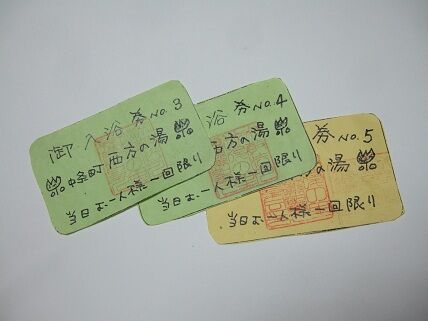 御入浴券No.3
中条町西方の湯
当日お一人様一回限り
浴券No.4
西方の湯
当日お一人様一回限り
券No.5
方の湯
当日お一人様一回限り